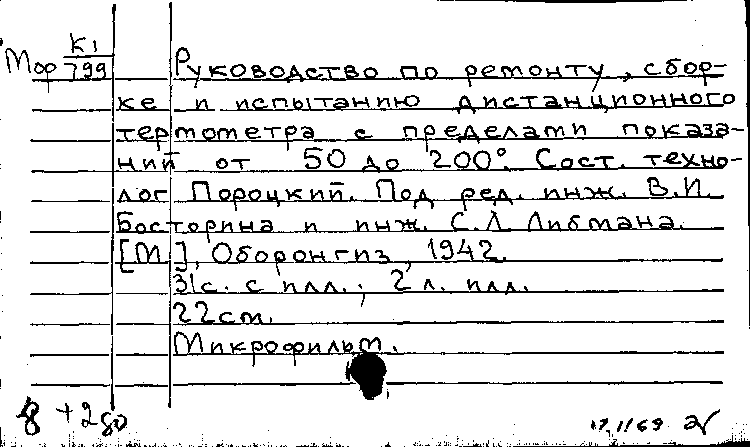 Мор К1/799
Руководство по ремонту, сбор-
ке и испытанию дистанционного
термометра с пределами показа-
ний от 50 до 200°. Сост. техно-
лог Пороцкий. Под ред. инж. В.И.
Босторина и инж. С.Л Либмана.
[М.], Оборонгиз, 1942.
31с. с илл.; 2 л. илл.
22см.
Микрофильм.
8 + 2